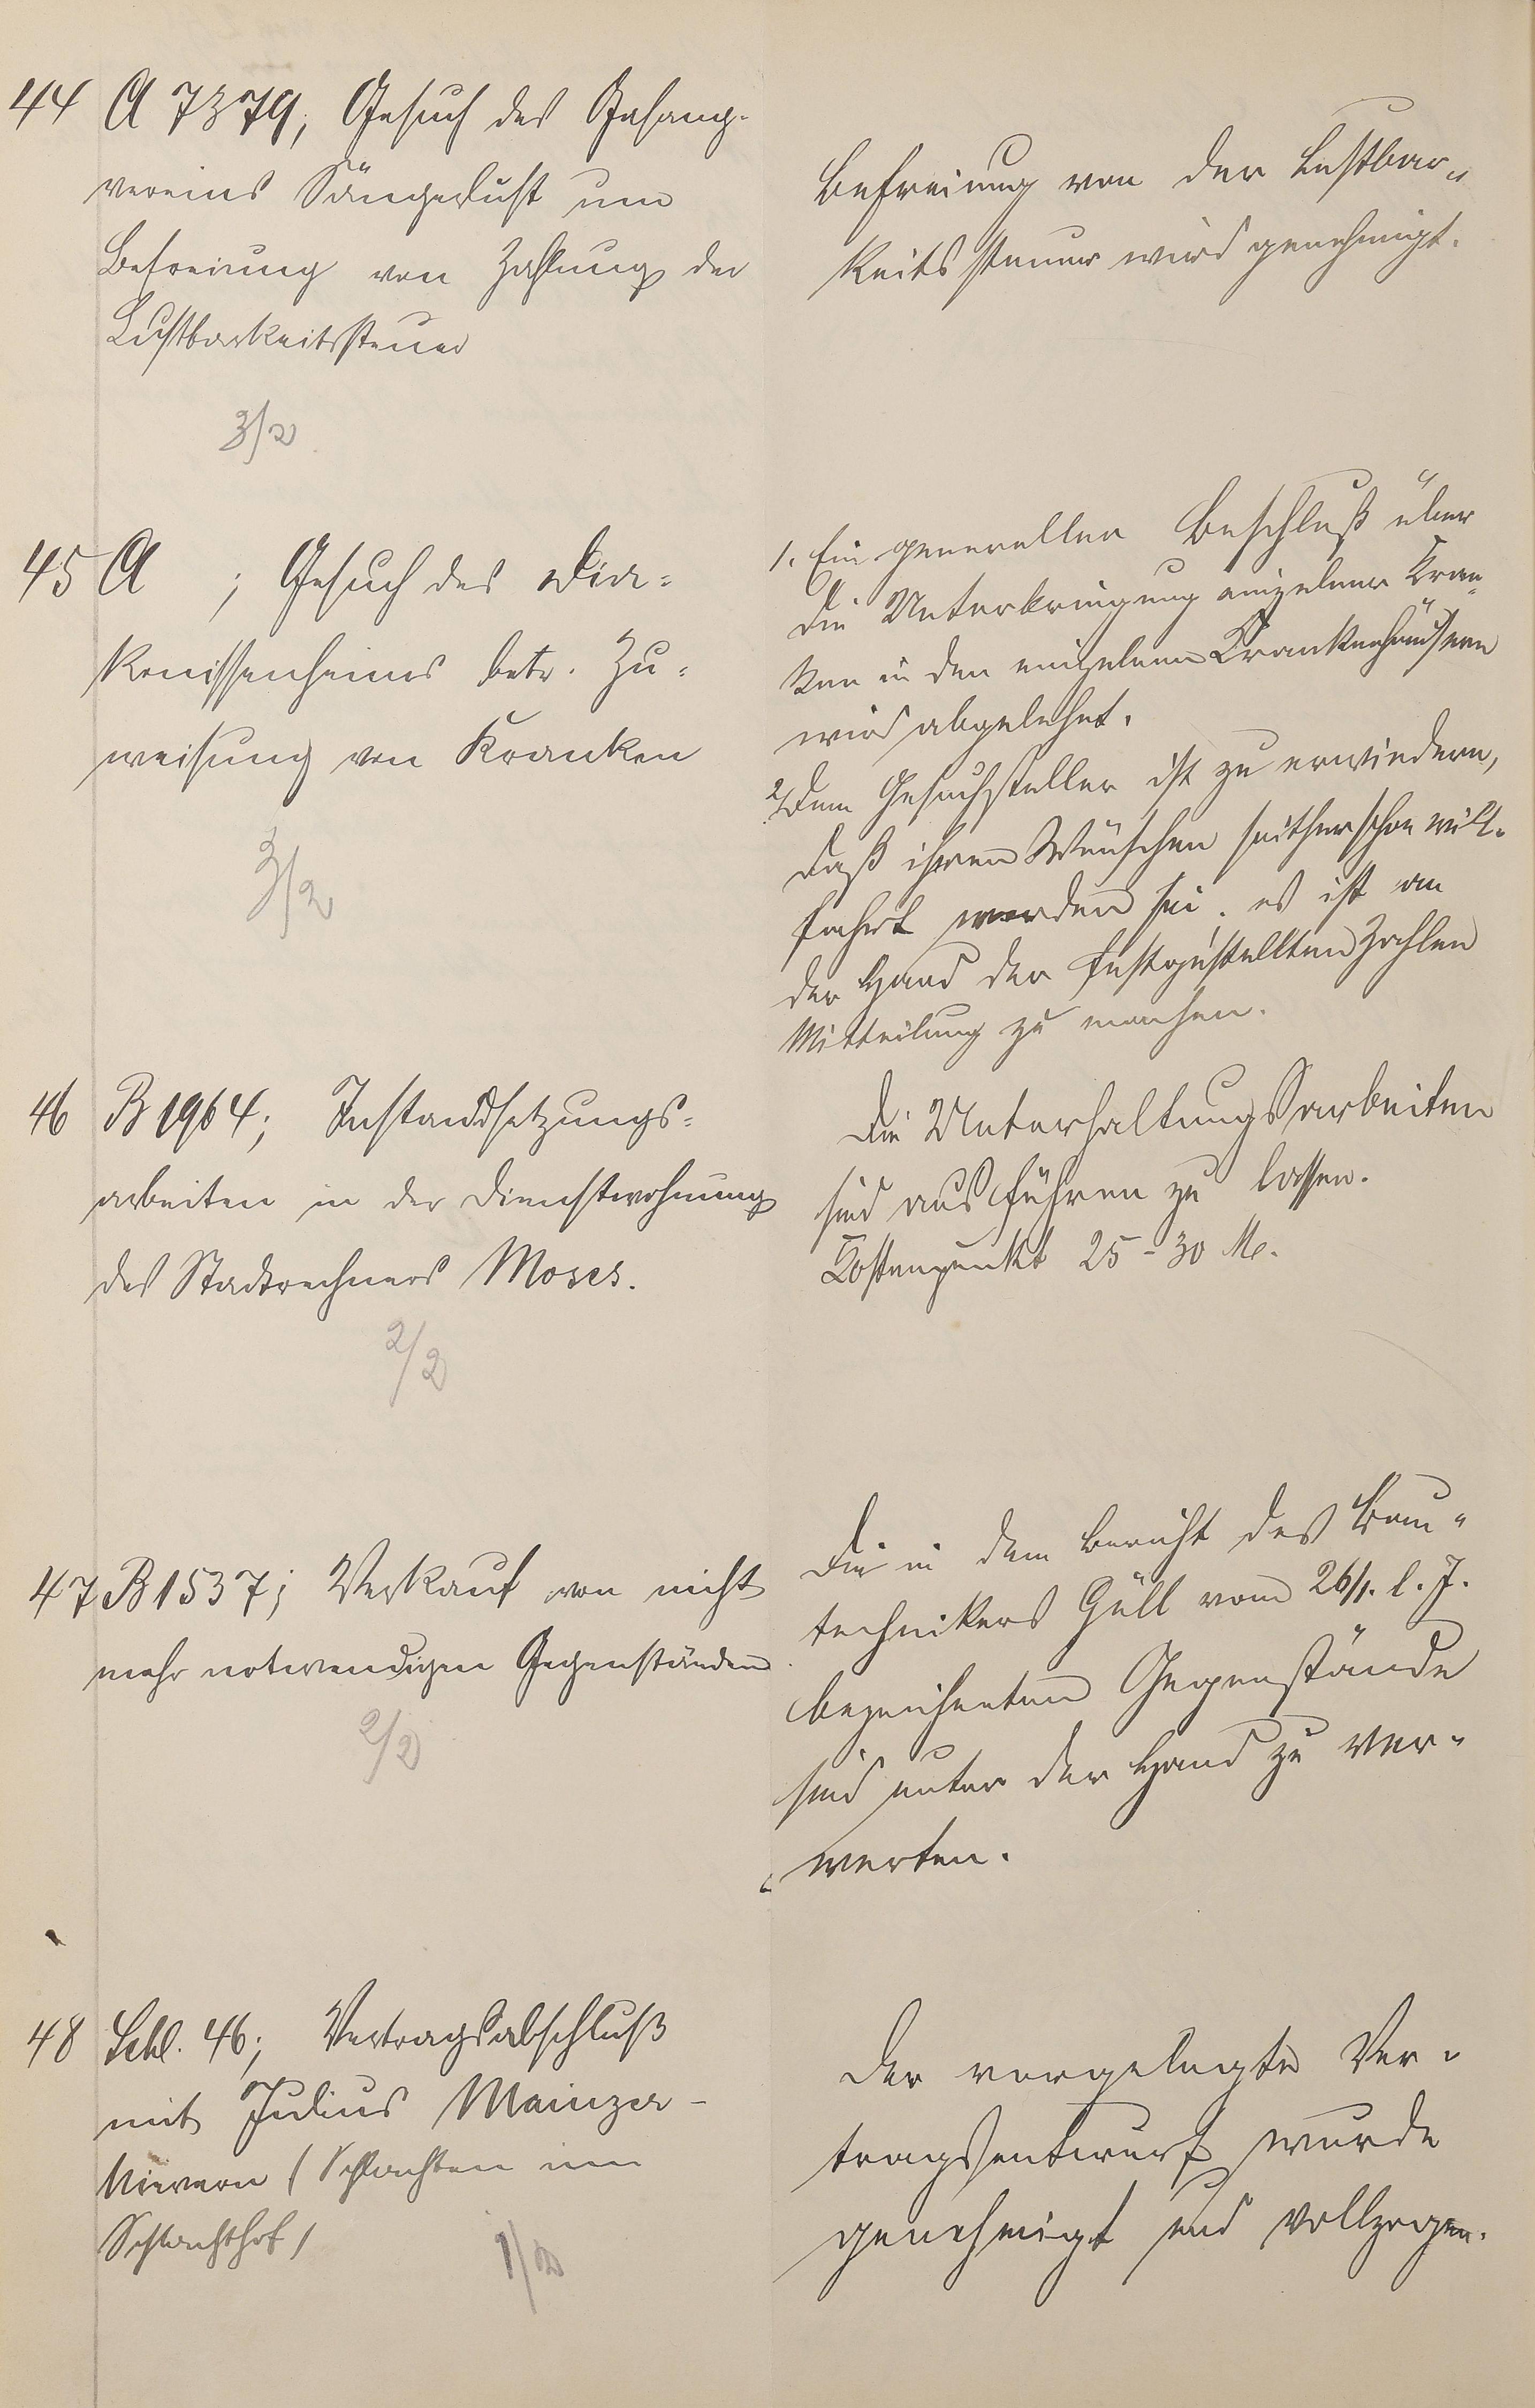 44 A 7379; Gesuch des Gesang-
vereins Sängerlust um
Befreiung von Zahlung der
Lustbarkeitssteuer
3/2
Befreiung von der Lustbar-
keitssteuer wird genehmigt.
45 A ; Gesuch des Dia-
konissenheimes betr. Zu-
weisung von Kranken
3/2
1. Ein genereller Beschluß über
die Unterbringung einzelner Kran-
ken in den einzelnen Krankenhäusern
wird abgelehnt.
2. Dem Gesuchsteller ist zu erwiedern,
daß ihren Wünschen seither schon will-
fahrt worden sei. es ist an
der Hand der festgestellten Zahlen
Mitteilung zu machen.
46 B 1964; Instandsetzungs-
arbeiten in der Dienstwohnung
des Stadtrechners Moses.
2/2
Die Unterhaltungsarbeiten
sind ausführen zu lassen.
Kostenpunkt 25-30 M.
47 B 1537; Verkauf von nicht
mehr notwendigen Gegenständen
2/2
Die in dem Bericht des Bau-
technikers Güll vom 26/1. l. J.
bezeichneten Gegenstände
sind unter der Hand zu ver-
werten.
48 Schl. 46; Vertragsabschluß
mit Julius Mainzer-
Nievern (Schlachten im
Schlachthof)
1/2
Der vorgelegte Ver-
tragsentwurf wurde
genehmigt und vollzogen.